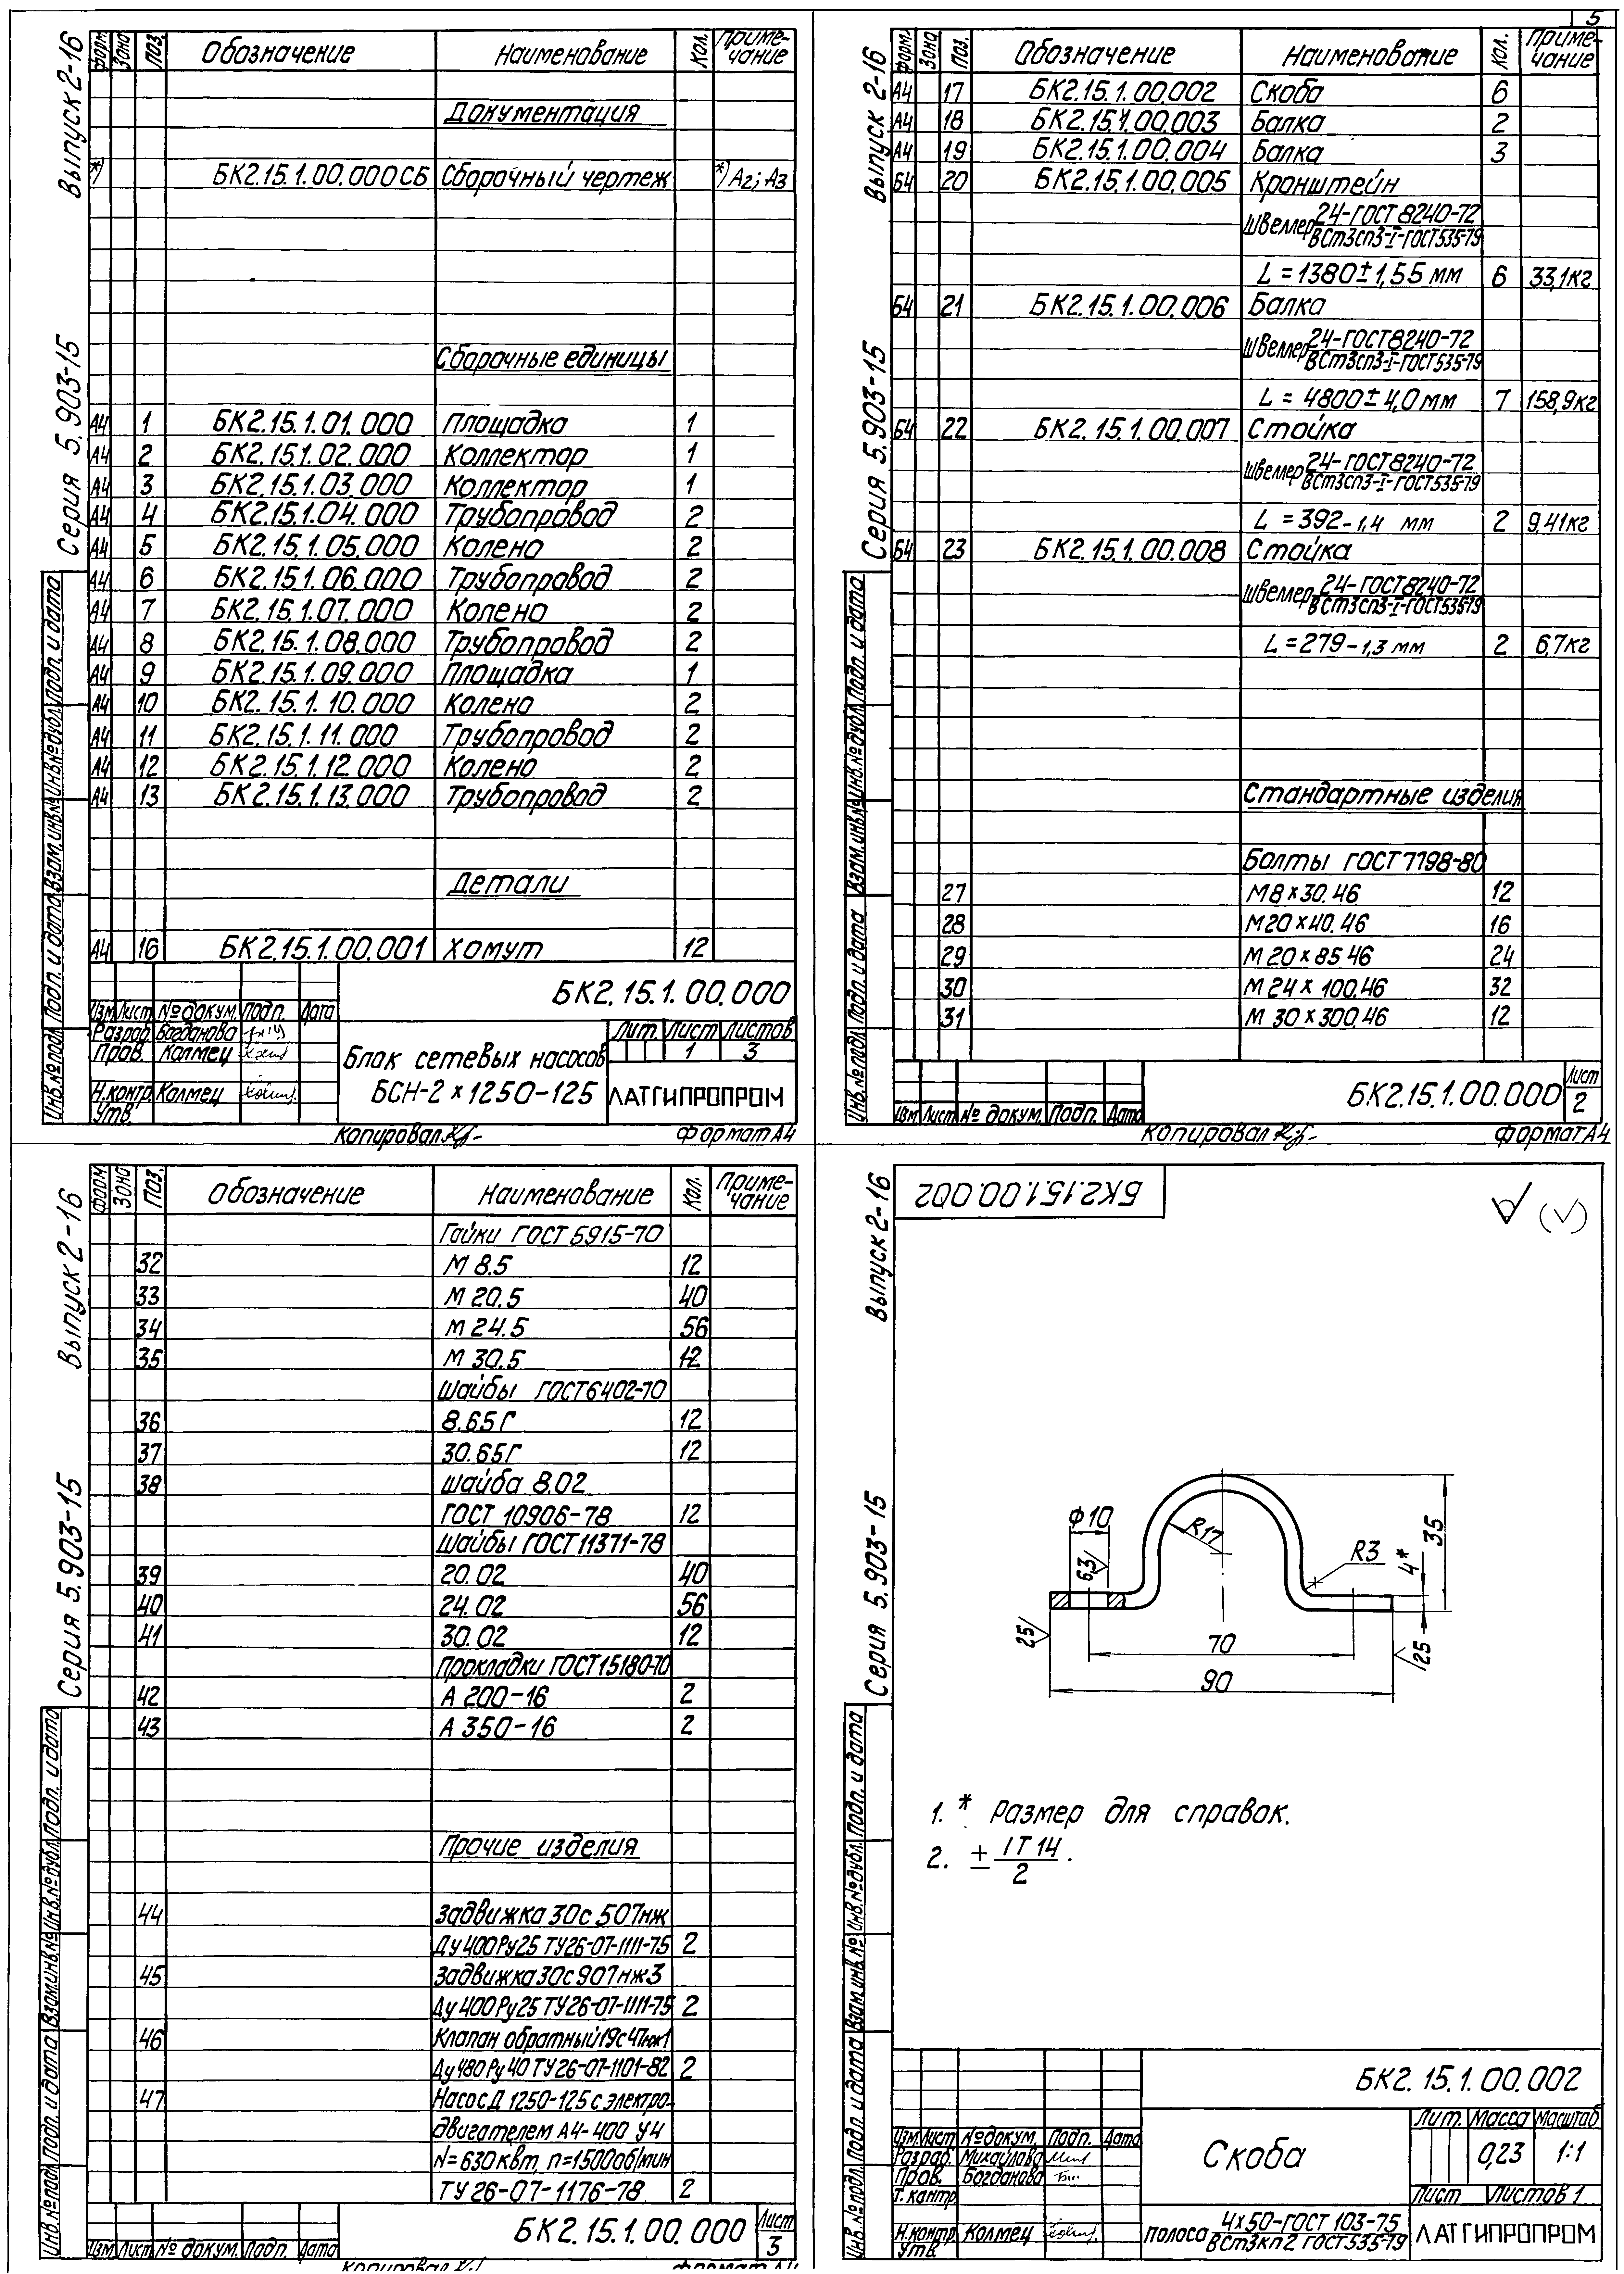 5
Выпуск 2-16
Серия 5.903-15
Форм. Зона Поз. Обозначение Наименование Кол. Приме-чание
Документация
*) БК2.15.1.00.000СБ Сборочный чертеж *) А2; А3
Сборочные единицы
А4 1 БК2.15.1.01.000 Площадка 1
А4 2 БК2.15.1.02.000 Коллектор 1
А4 3 БК2.15.1.03.000 Коллектор 1
А4 4 БК2.15.1.04.000 Трубопровод 2
А4 5 БК2.15.1.05.000 Колено 2
А4 6 БК2.15.1.06.000 Трубопровод 2
А4 7 БК2.15.1.07.000 Колено 2
А4 8 БК2.15.1.08.000 Трубопровод 2
А4 9 БК2.15.1.09.000 Площадка 1
А4 10 БК2.15.1.10.000 Колено 2
А4 11 БК2.15.1.11.000 Трубопровод 2
А4 12 БК2.15.1.12.000 Колено 2
А4 13 БК2.15.1.13.000 Трубопровод 2
Детали
А4 16 БК2.15.1.00.001 Хомут 12
Инв.№подл. Подп. и дата Взам.инв.№ Инв.№дубл. Подп. и дата
БК2.15.1.00.000
Изм Лист № докум. Подп. Дата
Разраб. Богданова
Пров. Колмец
Н.контр. Колмец
Утв.
Блок сетевых насосов
БСН-2×1250-125
Лит. Лист Листов
1 3
ЛАТГИПРОПРОМ
Копировал
Формат А4
Выпуск 2-16
Серия 5.903-15
Форм. Зона Поз. Обозначение Наименование Кол. Приме-чание
А4 17 БК2.15.1.00.002 Скоба 6
А4 18 БК2.15.1.00.003 Балка 2
А4 19 БК2.15.1.00.004 Балка 3
Б4 20 БК2.15.1.00.005 Кронштейн
Швеллер 24-ГОСТ 8240-72
ВСт3сп3-I-ГОСТ535-79
L = 1380±1,55 мм 6 33,1кг
Б4 21 БК2.15.1.00.006 Балка
Швеллер 24-ГОСТ8240-72
ВСт3сп3-I-ГОСТ535-79
L = 4800±4,0 мм 7 158,9кг
Б4 22 БК2.15.1.00.007 Стойка
Швеллер 24-ГОСТ8240-72
ВСт3сп3-I-ГОСТ535-79
L = 392-1,4 мм 2 9,41кг
Б4 23 БК2.15.1.00.008 Стойка
Швеллер 24-ГОСТ8240-72
ВСт3сп3-I-ГОСТ535-79
L = 279-1,3 мм 2 6,7кг
Стандартные изделия
Болты ГОСТ 7798-80
27 М8×30.46 12
28 М20×40.46 16
29 М20×85 46 24
30 М24×100.46 32
31 М30×300.46 12
Инв.№подл. Подп. и дата Взам.инв.№ Инв.№дубл. Подп. и дата
Изм Лист № докум. Подп. Дата
БК2.15.1.00.000
Лист
2
Копировал
Формат А4
Выпуск 2-16
Серия 5.903-15
Форм Зона Поз. Обозначение Наименование Кол. Приме-чание
Гайки ГОСТ 5915-70
32 М 8.5 12
33 М 20.5 40
34 М 24.5 56
35 М 30.5 12
Шайбы ГОСТ6402-70
36 8.65Г 12
37 30.65Г 12
38 Шайба 8.02
ГОСТ 10906-78 12
Шайбы ГОСТ11371-78
39 20.02 40
40 24.02 56
41 30.02 12
Прокладки ГОСТ15180-70
42 А 200-16 2
43 А 350-16 2
Прочие изделия
44 Задвижка 30с 507нж
Ду 400Ру25 ТУ26-07-1111-75 2
45 Задвижка30с907нж3
Ду 400Ру25 ТУ26-07-1111-75 2
46 Клапан обратный19с47нж1
Ду 480 Ру 40 ТУ26-07-1101-82 2
47 Насос Д 1250-125 с электро-
двигателем А4-400 У4
N=630квт, n=1500об/мин
ТУ 26-07-1176-78 2
Инв.№подл. Подп. и дата Взам.инв.№ Инв.№дубл. Подп. и дата
Изм Лист № докум. Подп. Дата
БК2.15.1.00.000
Лист
3
Копировал
Формат А4
Выпуск 2-16
Серия 5.903-15
БК2.15.1.00.002
(√)
ф10
6,3
R17
R3
4*
35
25
70
25
90
1. * Размер для справок.
2. ± IT14/2.
Инв.№подл. Подп. и дата Взам.инв.№ Инв.№дубл. Подп. и дата
БК2.15.1.00.002
Изм Лист № докум. Подп. Дата
Разраб. Михайлова
Пров. Богданова
Т.контр.
Н.контр. Колмец
Утв.
Скоба
Лит. Масса Масштаб
0,23 1:1
Лист Листов 1
полоса 4х50-ГОСТ 103-75
ВСт3кп2 ГОСТ535-79
ЛАТГИПРОПРОМ